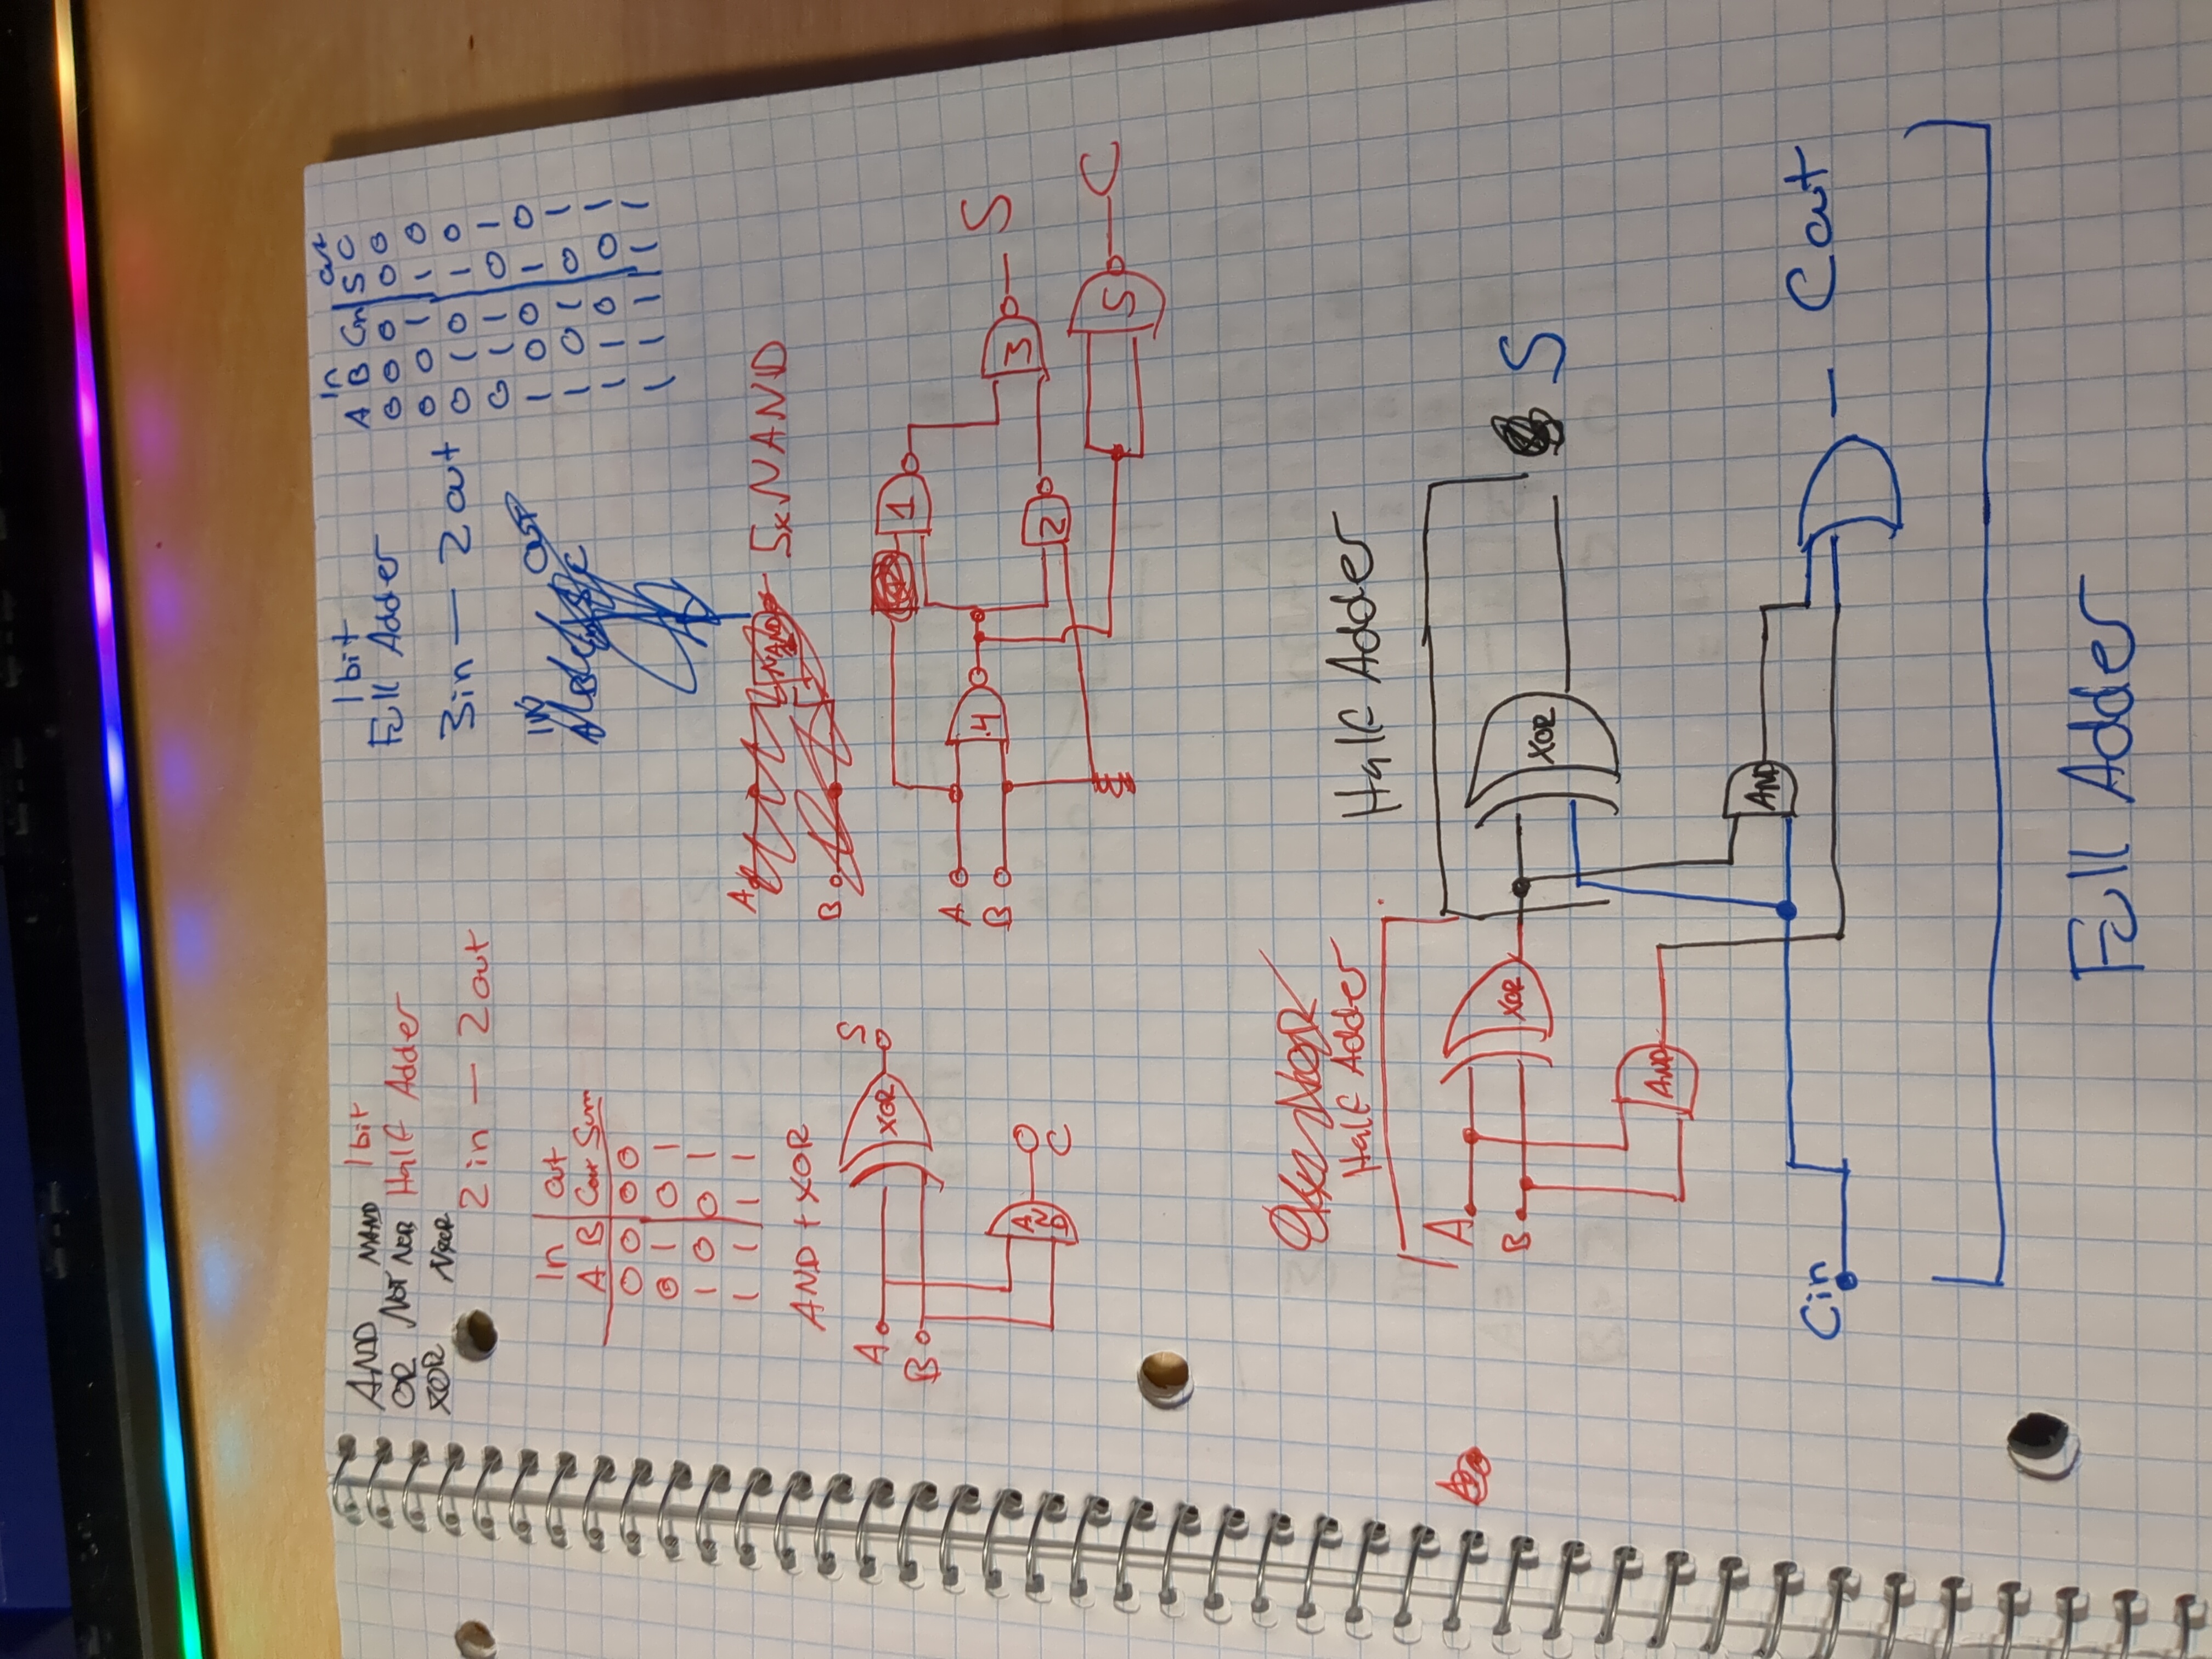 AND NAND
OR NOT NOR
XOR NXOR
1 bit
Half Adder
2 in — 2 out
In out
A B Cout Sum
0 0 0 0
0 1 0 1
1 0 0 1
1 1 1 1
AND + XOR
A
B
XOR
S
AND
C
1 bit
Full Adder
3in — 2 out
In out
A B Cin S C
0 0 0 0 0
0 0 1 1 0
0 1 0 1 0
0 1 1 0 1
1 0 0 1 0
1 0 1 0 1
1 1 0 0 1
1 1 1 1 1
IN OUT
A B C
A
NAND
B
5x NAND
A
B
4
1
2
3
S
5
C
NOR
Half Adder
Half Adder
A
B
XOR
XOR
S
AND
AND
Cin
Cout
Full Adder